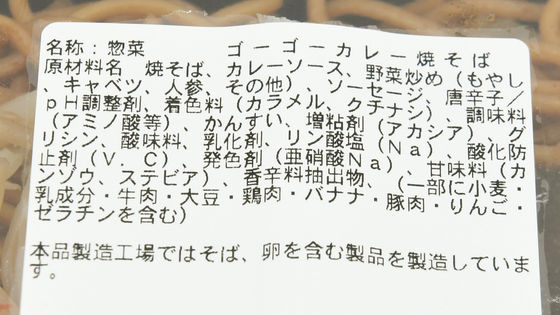 名称：惣菜　　　ゴーゴーカレー焼そば
原材料名　焼そば、カレーソース、野菜炒め（もやし
、キャベツ、人参、その他）、ソーセージ、唐辛子／
ｐＨ調整剤、着色料（カラメル、クチナシ）、調味料
（アミノ酸等）、かんすい、増粘剤（アカシア）、グ
リシン、酸味料、乳化剤、リン酸塩（Ｎａ）、酸化防
止剤（Ｖ．Ｃ）、発色剤（亜硝酸Ｎａ）、甘味料（カ
ンゾウ、ステビア）、香辛料抽出物、（一部に小麦・
乳成分・牛肉・大豆・鶏肉・バナナ・豚肉・りんご・
ゼラチンを含む）
本品製造工場ではそば、卵を含む製品を製造していま
す。